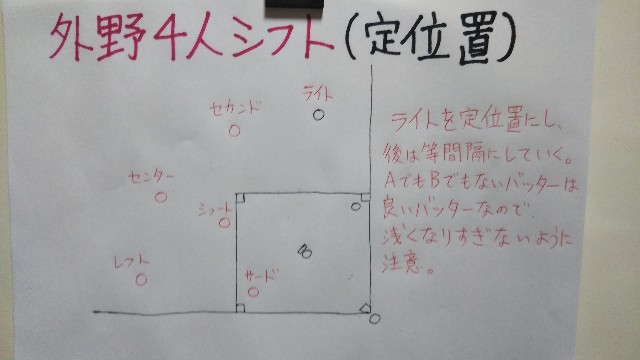 外野4人シフト(定位置)
ライト
セカンド
センター
ショート
レフト
サード
ライトを定位置にし、
後は等間隔にしていく。
AでもBでもないバッターは
良いバッターなので
浅くなりすぎないように
注意。